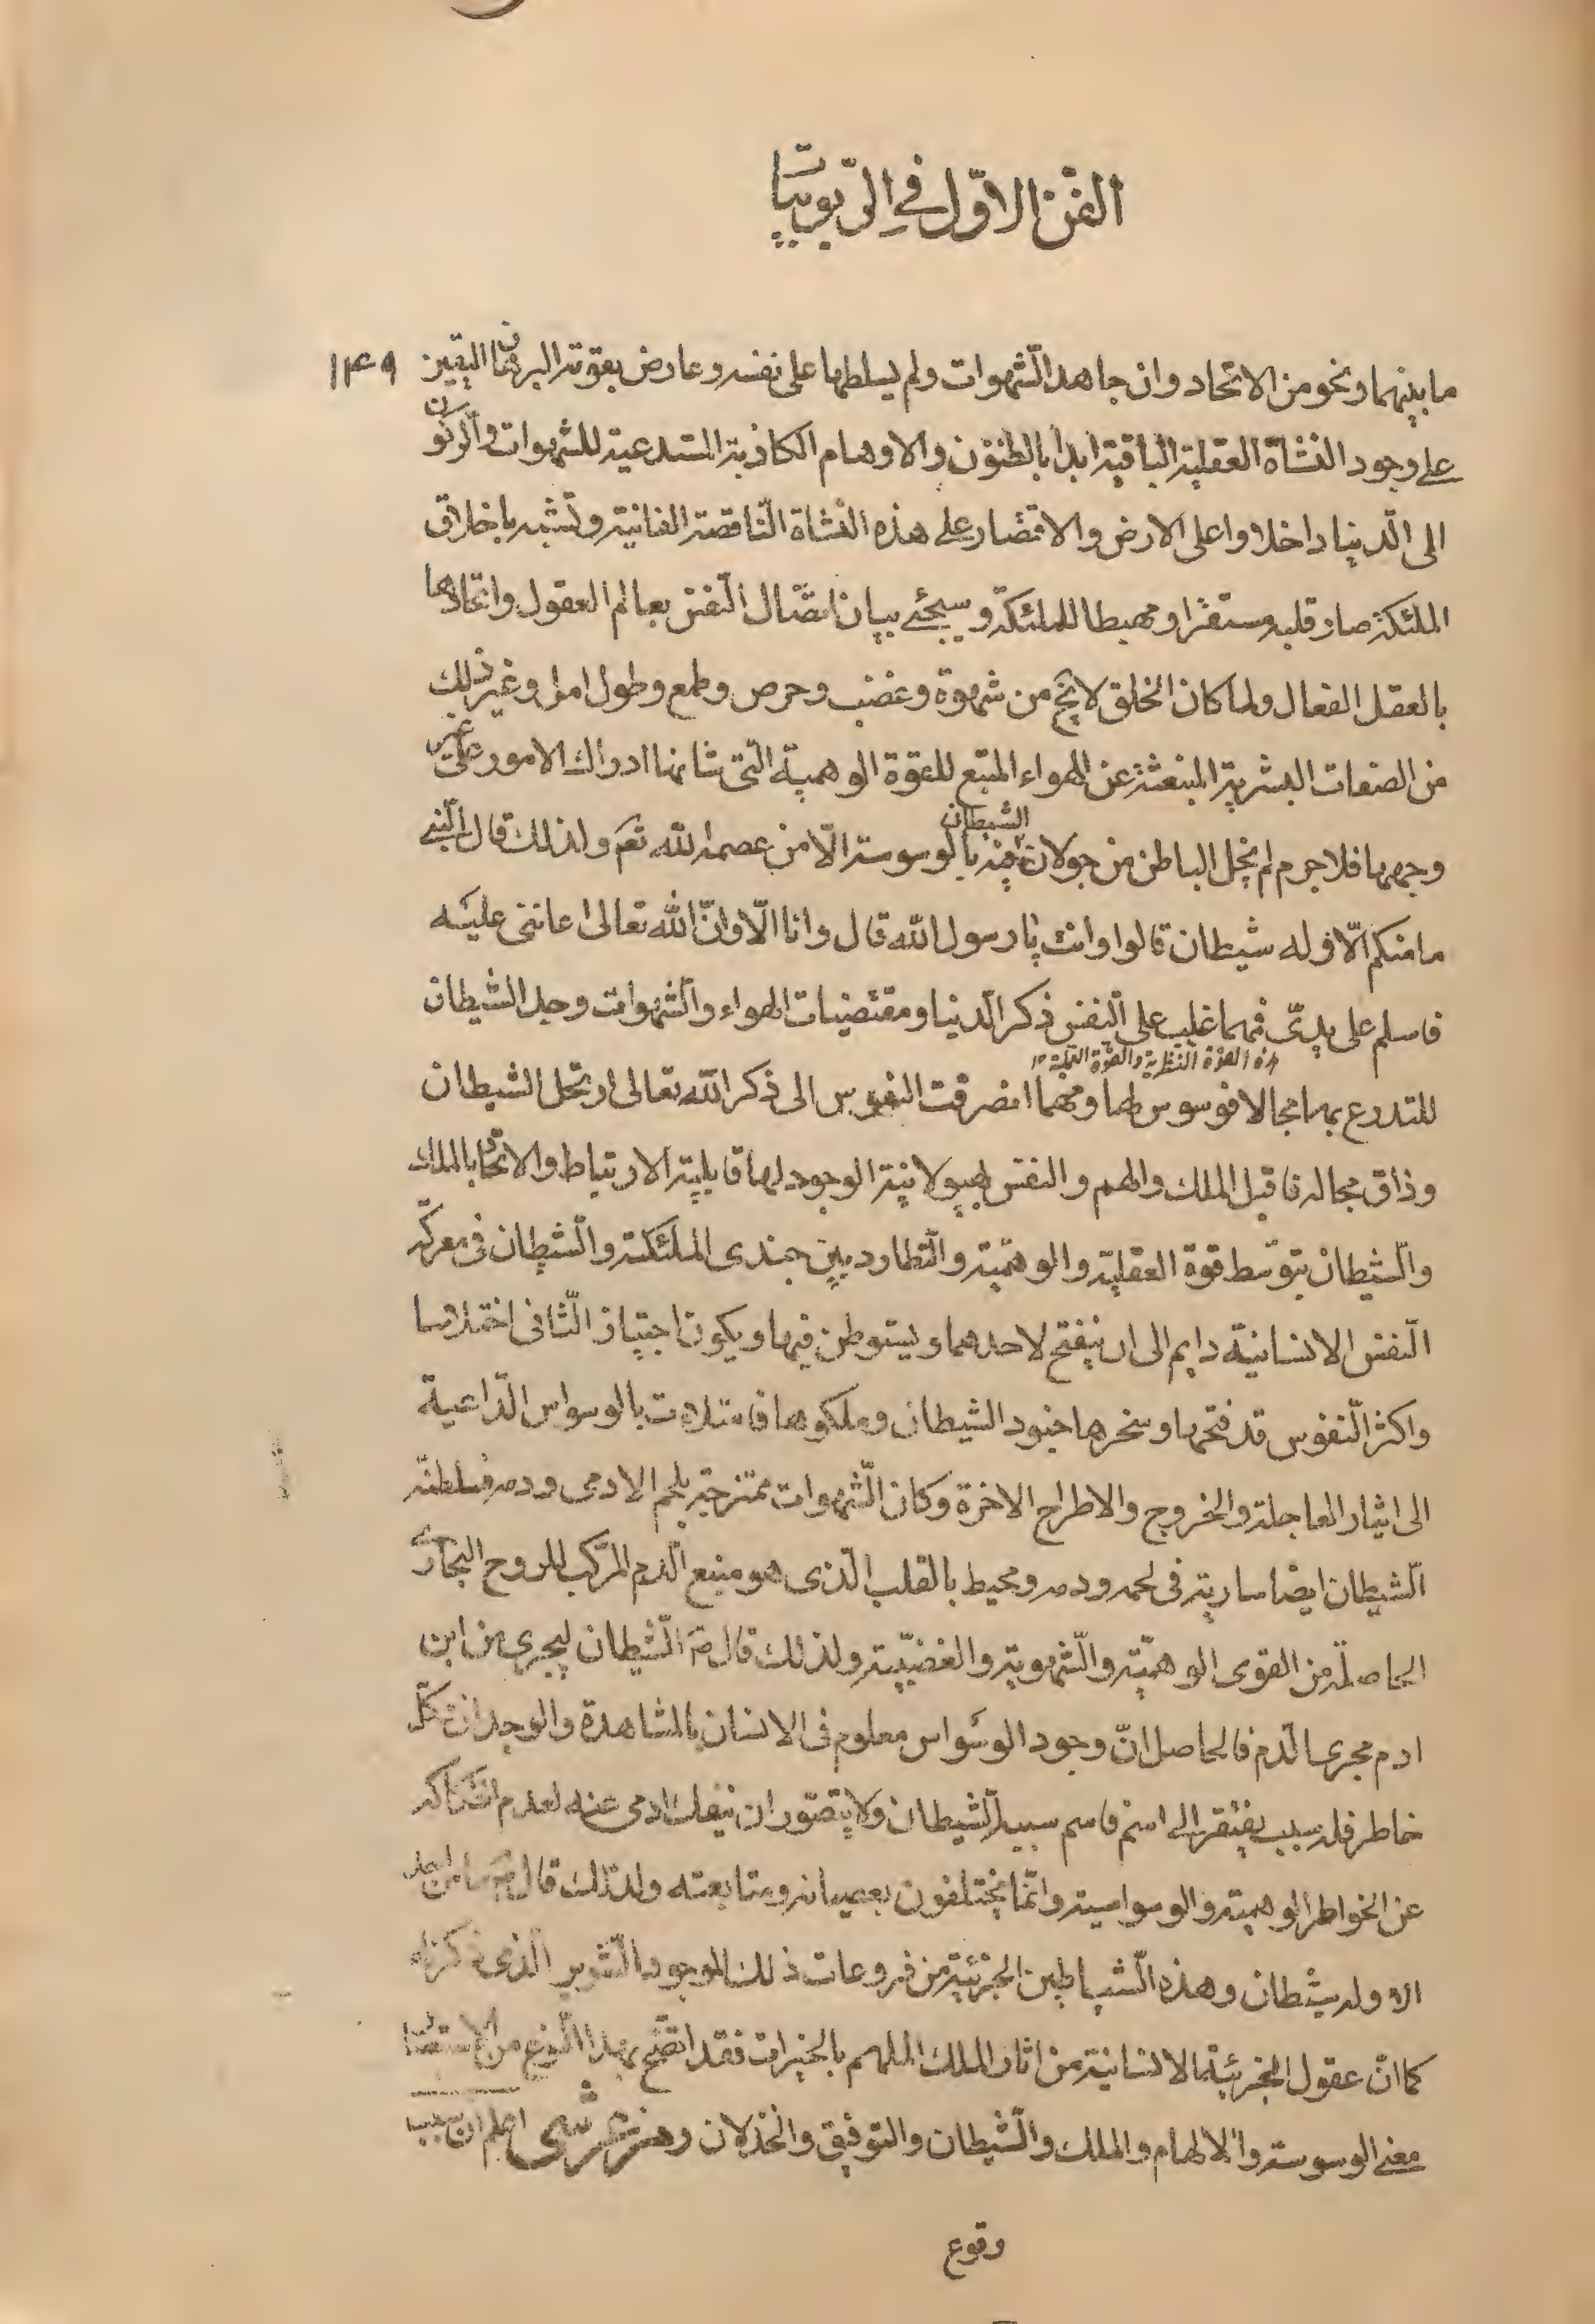 الفن الاول في الربوبيات
ما بينهما ونحو من الاتحاد وان جاهد الشهوات ولم يسلطها على نفسه وعارض بقوته البرهان اليقين ١٤٩
على وجود النشأة العقلية الباقية ابدا بالظنون والاوهام الكاذبة المستدعية للشهوات والركون
الى الدنيا داخلا واعلى الارض والاقتصار على هذه النشاة الناقصة الفانية وتشبه باخلاق
الملئكة صار قلبه مستقرا ومهبطا للملئكة وسيجئ بيان اتصال النفس بعالم العقول واتحادها
بالعقل الفعال ولما كان الخلق لا يخ من شهوة وغضب وحرص وطمع وطول امل وغير ذلك
من الصفات البشرية المنبعثة عن الهواء المتبع للقوة الوهمية التى شانها ادراك الامور على غير
وجهها فلا جرم لم يخل الباطن من جولان الشيطان فيه بالوسوسة الا من عصمه الله تعم ولذلك قال النبي
ما منكم الا وله شيطان قالوا وانت يا رسول الله قال وانا الا وان الله تعالى اعاننى عليه
فاسلم على يدى فمهما غلب على النفس ذكر الدنيا ومقتضيات الهواء والشهوات وجد الشيطان
القوة النظرية والقوة
للتدرع بها مجالا فوسوس لها ومهما انصرفت النفوس الى ذكر الله تعالى ارتحل الشيطان
وذاق مجاله فاقبل الملك والهم والنفس لهيولانية الوجود لها قابلية الارتباط والاتحاد بالملك
والشيطان بتوسط قوة العقلية والوهمية والتطارد بين جندى الملئكة والشيطان فى معركة
النفس الانسانية دايم الى ان ينفتح لاحدهما ويستوطن فيها ويكون اجتياز الثانى اختلاسا
واكثر النفوس قد فتحها وسخرها جنود الشيطان وملكوها فامتلات بالوسواس الداعية
الى ايثار العاجلة والخروج والاطراح الاخرة وكان الشهوات ممتزجة بلحم الادمى ودمه فسلطنة
الشيطان ايضا سارية فى لحمه ودمه ومحيط بالقلب الذى هو منبع الدم المركب للروح البخارى
الحاصلة من القوى الوهمية والشهوية والغضبية ولذلك قال ص الشيطان ليجرى من ابن
ادم مجرى الدم فالحاصل ان وجود الوسواس معلوم فى الانسان بالمشاهدة والوجدان وكل
خاطر فله سبب يفتقر الى اسم فاسم سببه الشيطان ولا يتصور ان ينفك ادمى عنه لعدم انفكاكه
عن الخواطر الوهمية والوسواسية وانما يختلفون بعصيانه ومتابعته ولذلك قال ص ما من احد
الا وله شيطان وهذه الشياطين الجزئية من فروعات ذلك الموجود الشرير الذى ذكرناه
كما ان عقول الجزئية الانسانية من اثار الملك الملهم بالخيرات فقد اتضح بهذا النوع من الاستقصاء
معنى الوسوسة والالهام والملك والشيطان والتوفيق والخذلان رمز عرشى اعلم ان سبب
وقوع